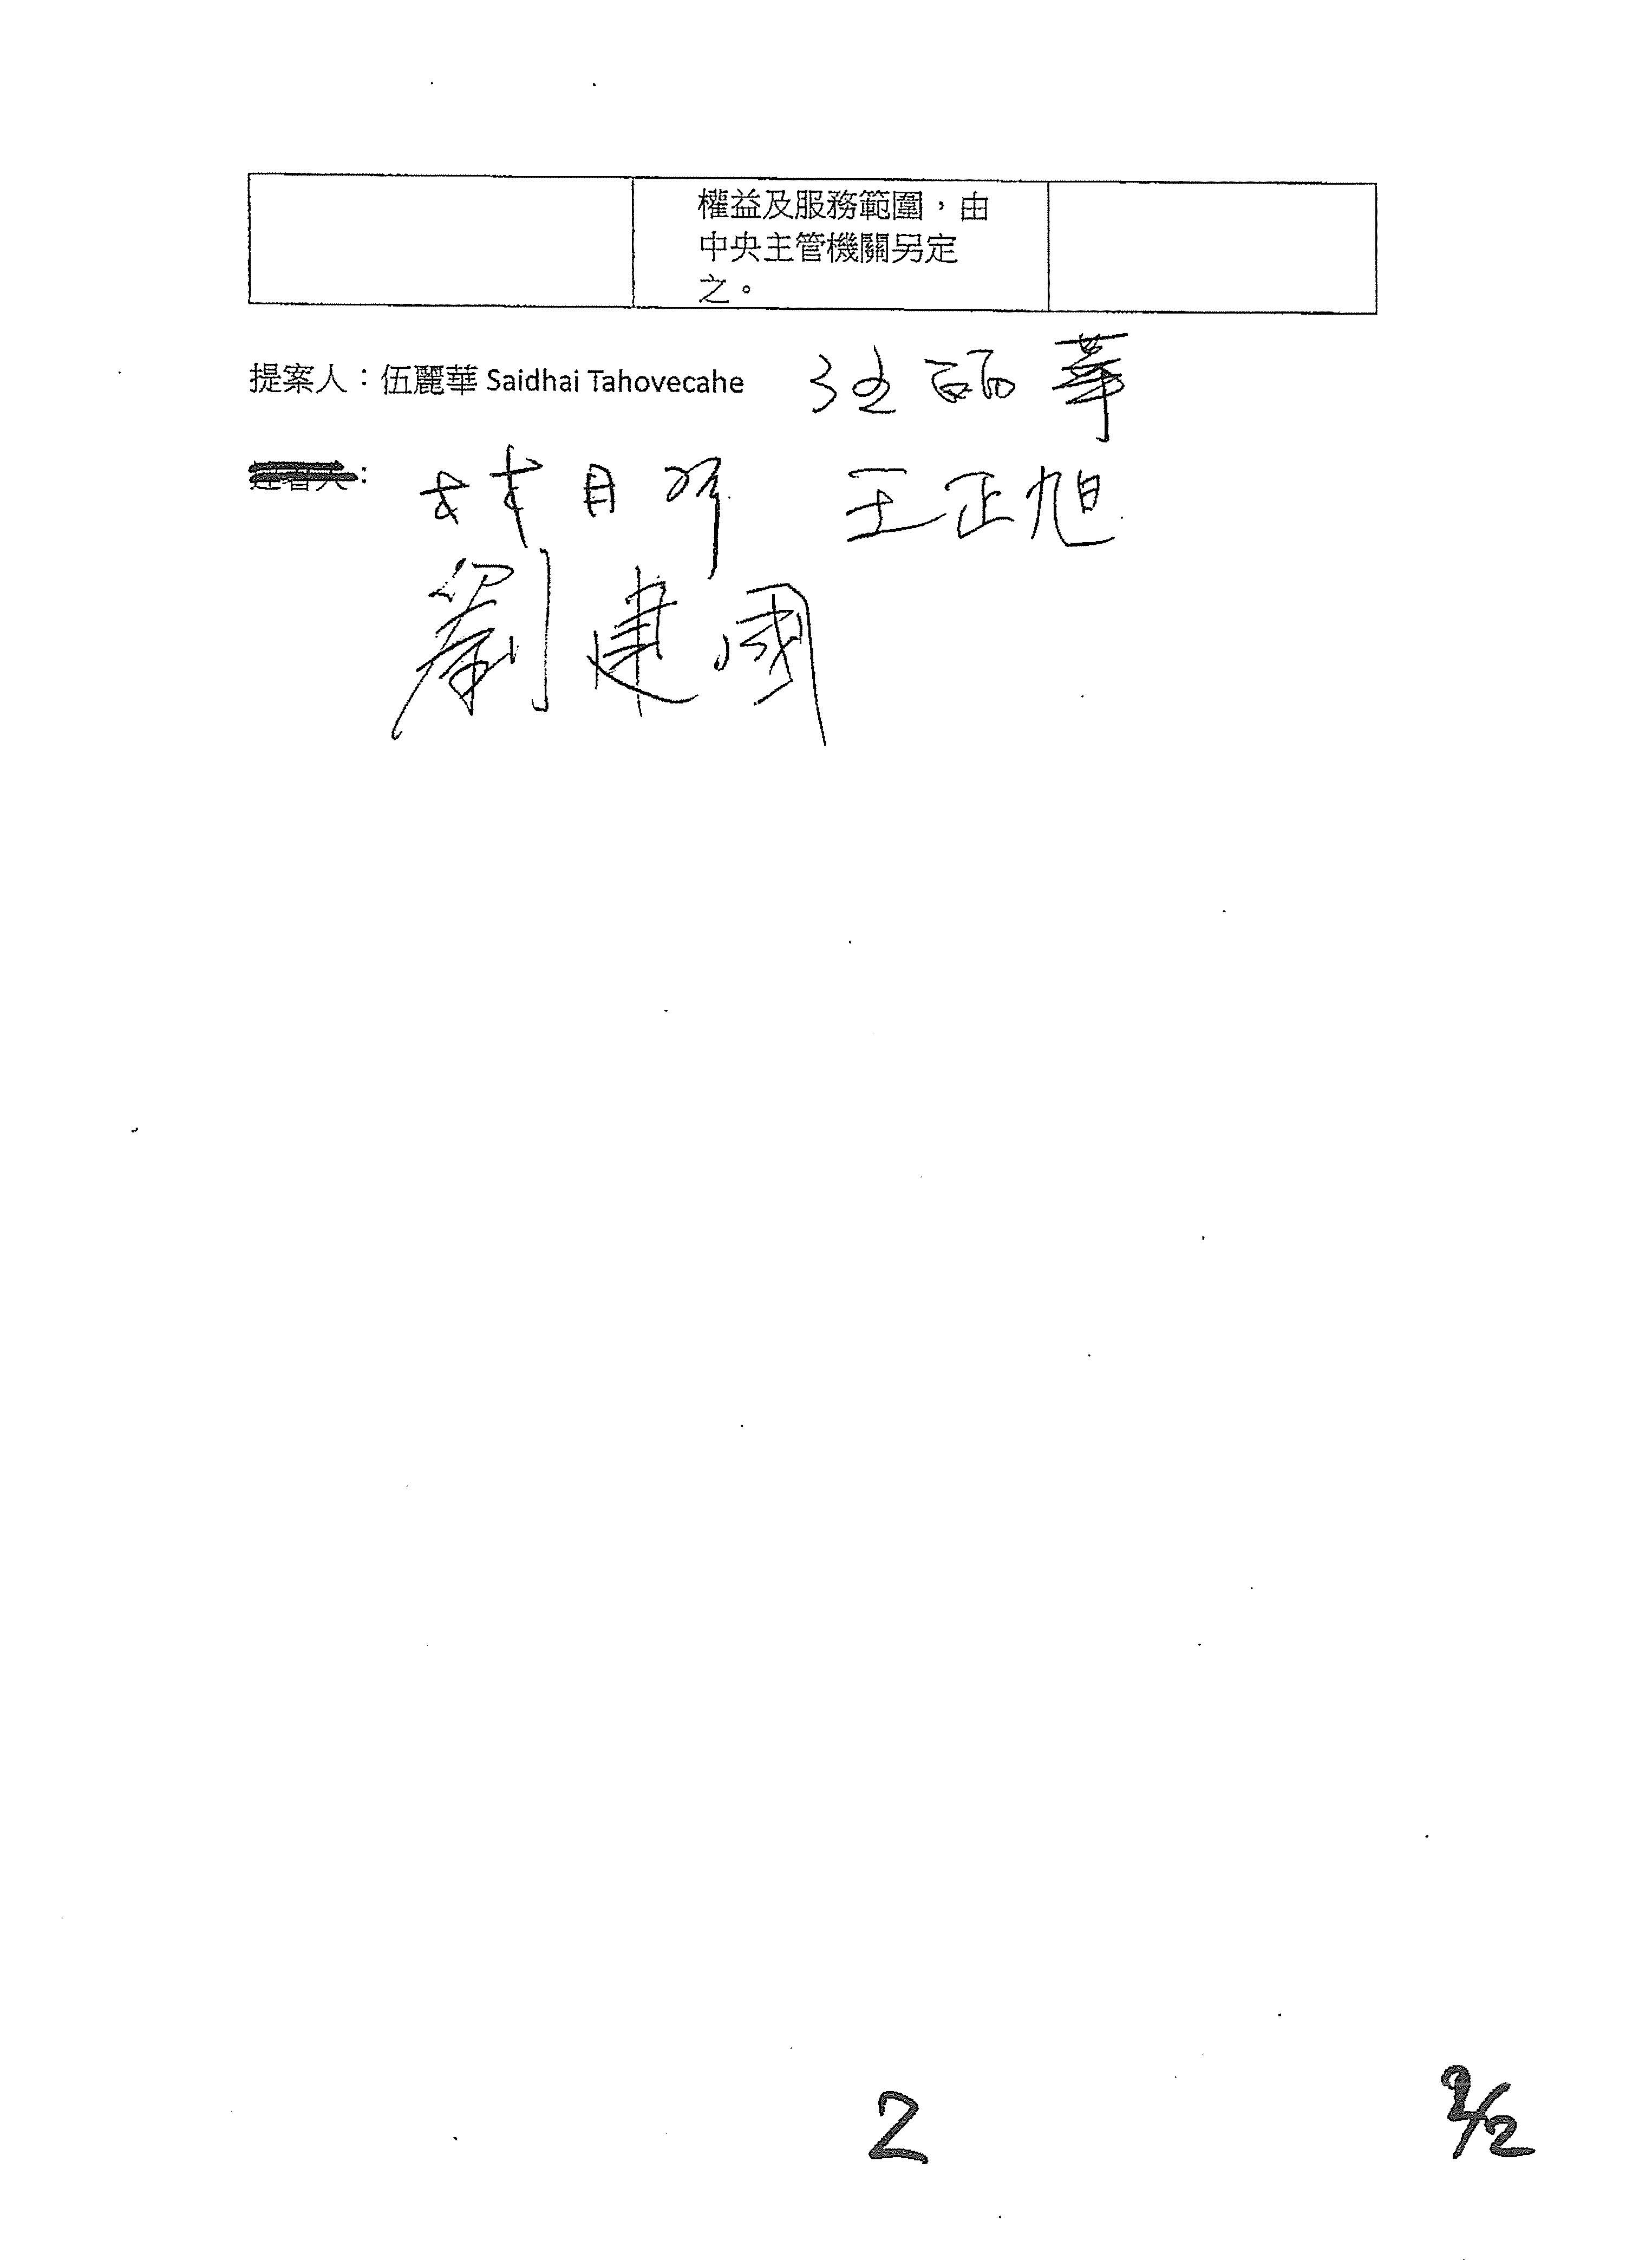 權益及服務範圍，由
中央主管機關另定
之。
提案人：伍麗華 Saidhai Tahovecahe 伍麗華
林月琴 王正旭
劉建國
2 2/2